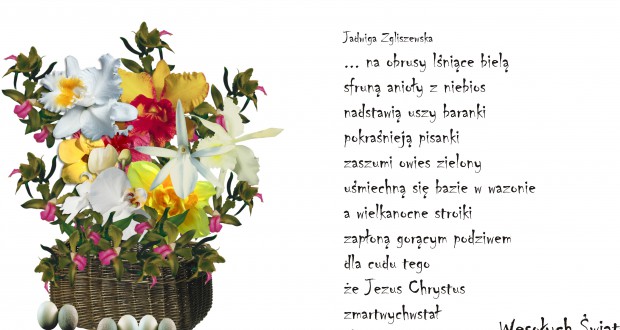 Jadwiga Zgliszewska
... na obrusy lśniące bielą
sfruną anioły z niebios
nadstawią uszy baranki
pokraśnieją pisanki
zaszumi owies zielony
uśmiechną się bazie w wazonie
a wielkanocne stroiki
zapłoną gorącym podziwem
dla cudu tego
że Jezus Chrystus
zmartwychwstał
Wesołych Świąt